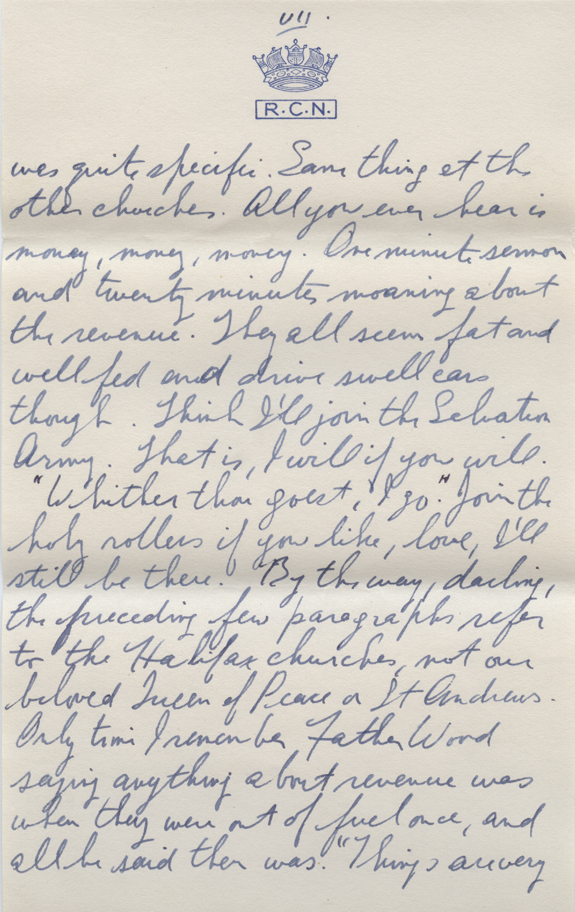 VII.
R.C.N.
was quite specific. Same thing at the
other churches. All you ever hear is
money, money, money. One minute sermon
and twenty minutes moaning about
the revenue. They all seem fat and
well fed and drive swell cars
though. Think I'll join the Salvation
Army. That is, I will if you will.
"Whither thou goest, I go." Join the
holy rollers if you like, love, I'll
still be there. By the way, darling,
the preceding few paragraphs refer
to the Halifax churches, not our
beloved Queen of Peace or St Andrews.
Only time I remember Father Wood
saying anything about revenue was
when they were out of fuel once, and
all he said then was. "Things are very